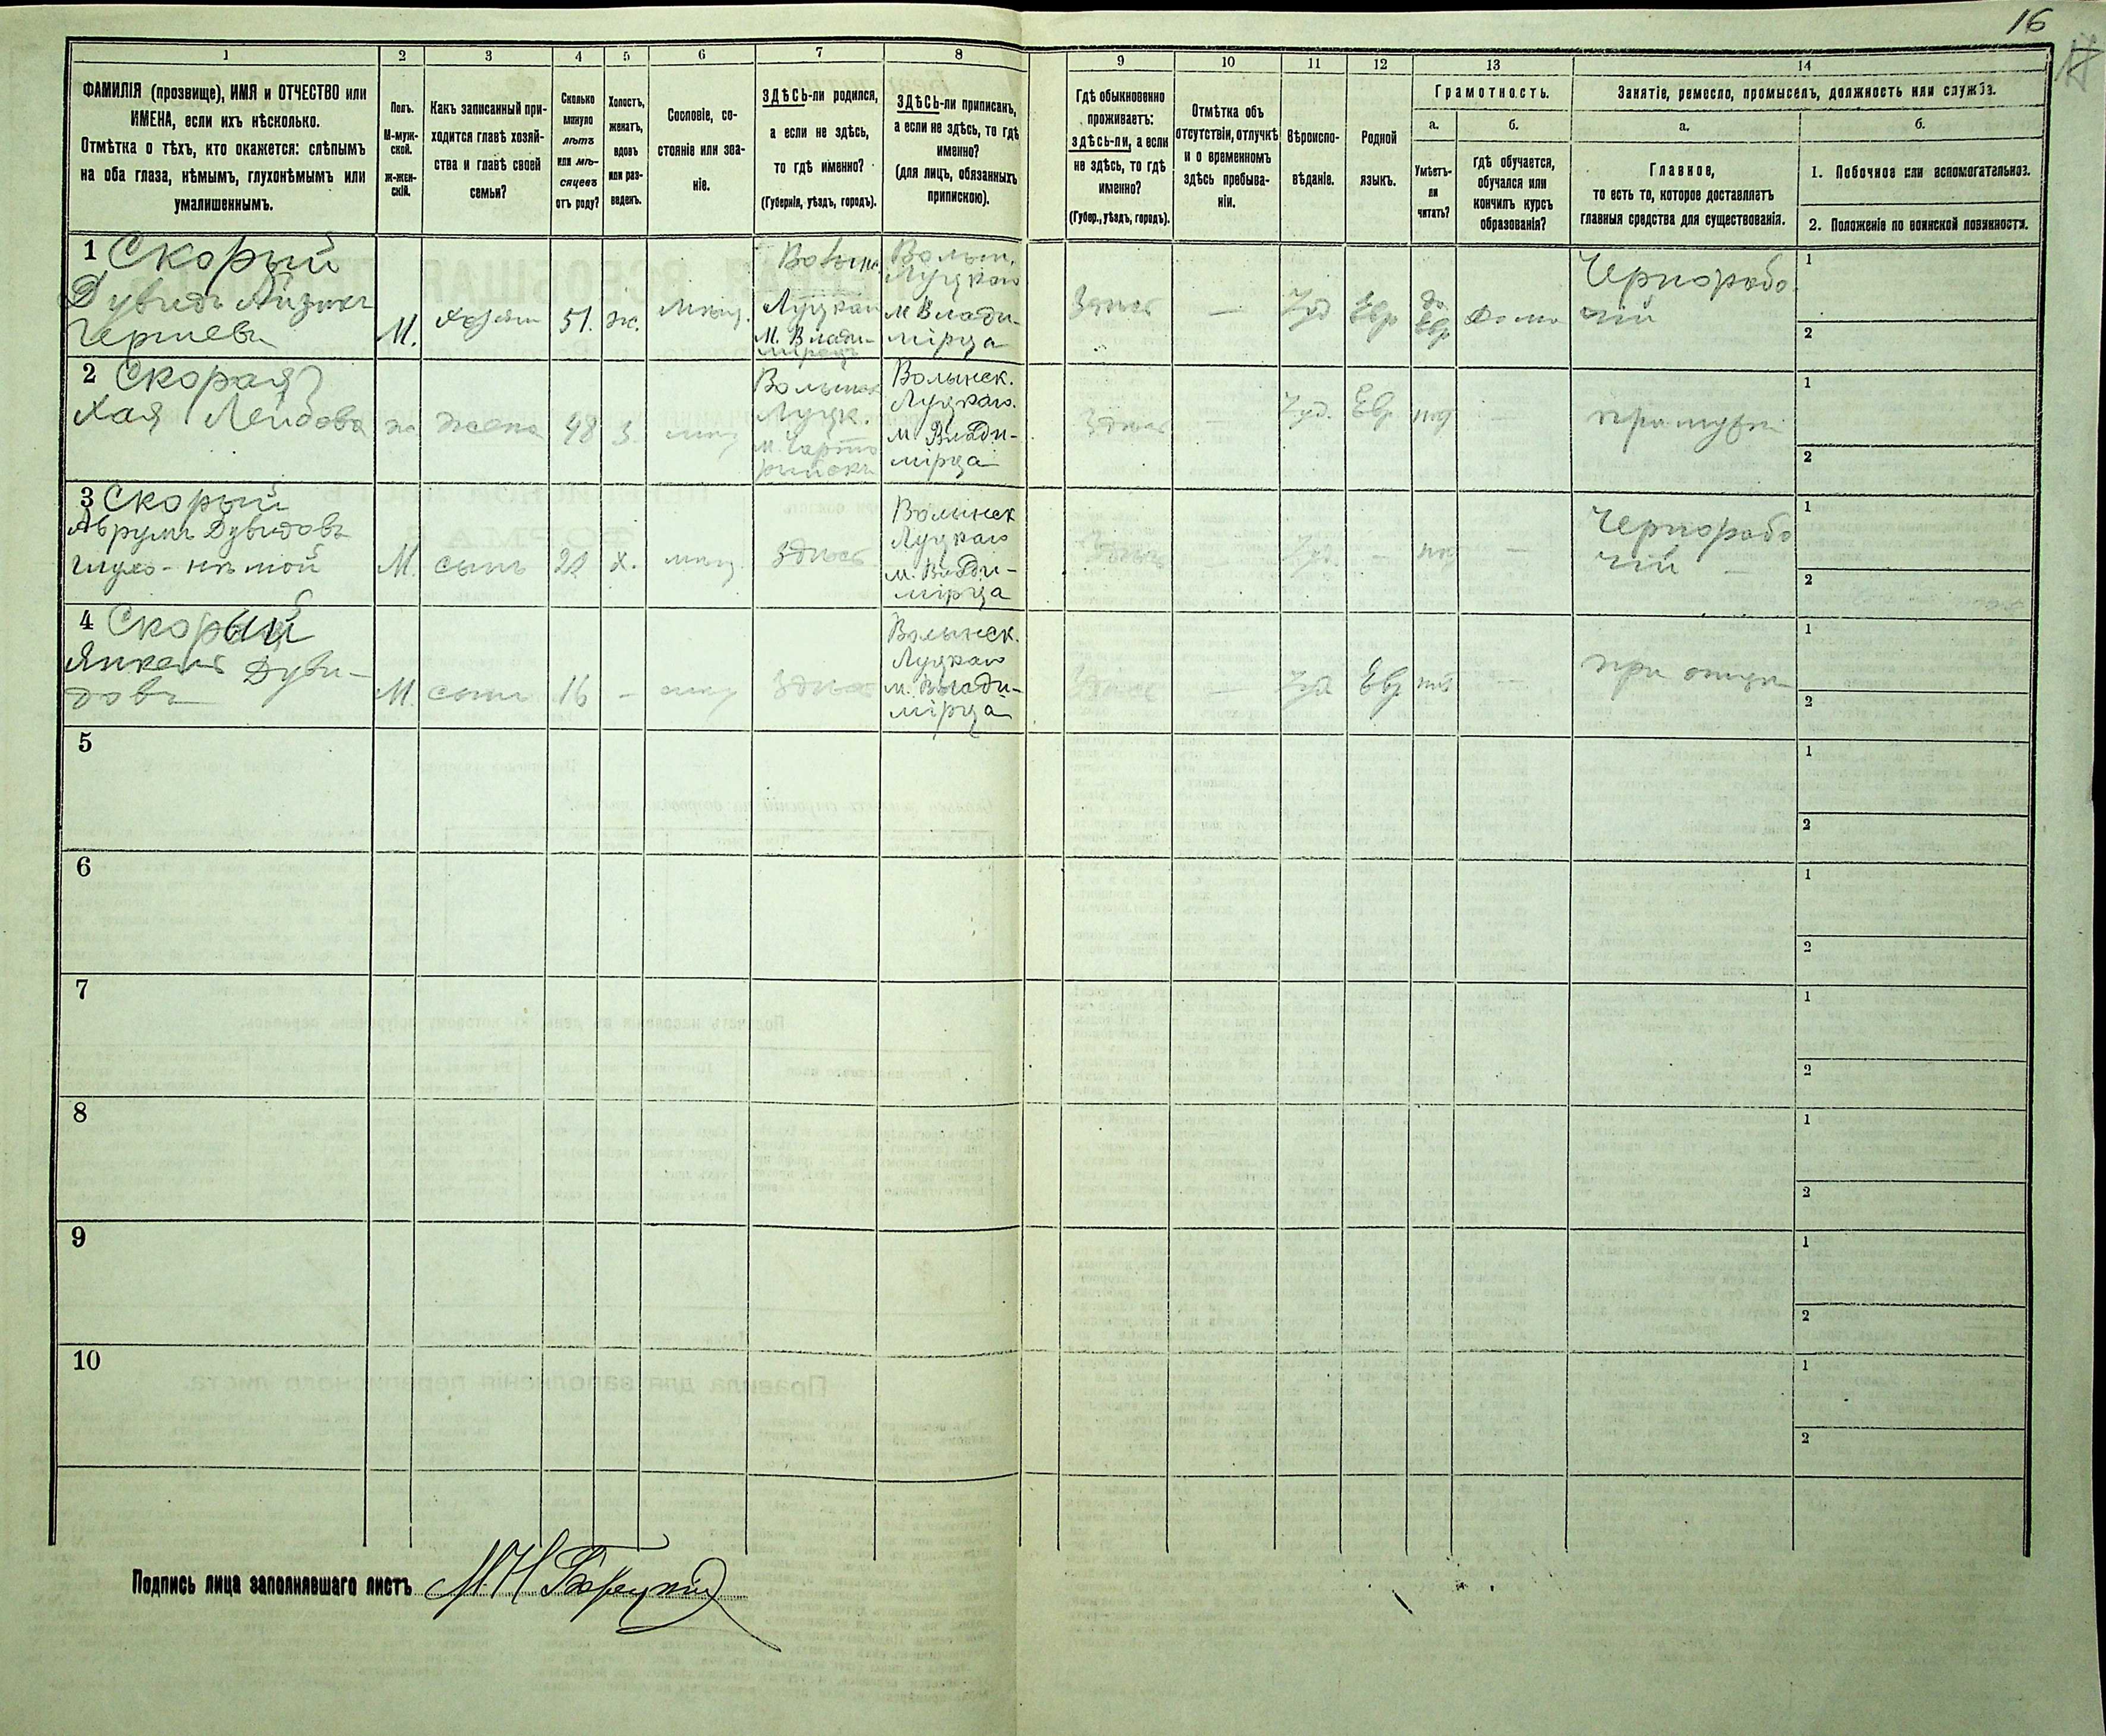 16
1
2
3
4
5
6
7
8
9
10
11
12
13
14
ФАМИЛІЯ (прозвище), ИМЯ и ОТЧЕСТВО или
ИМЕНА, если ихъ нѣсколько.
Отмѣтка о тѣхъ, кто окажется: слѣпымъ
на оба глаза, нѣмымъ, глухонѣмымъ или
умалишеннымъ.
Полъ.
М-муж-
ской.
Ж-жен-
скій.
Какъ записанный при-
ходится главѣ хозяй-
ства и главѣ своей
семьи?
Сколько
минуло
лѣтъ
или мѣ-
сяцевъ
отъ роду?
Холостъ,
женатъ,
вдовъ
или раз-
веденъ.
Сословіе, со-
стояніе или зва-
ніе.
ЗДѢСЬ-ли родился,
а если не здѣсь,
то гдѣ именно?
(Губернія, уѣздъ, городъ).
ЗДѢСЬ-ли приписанъ,
а если не здѣсь, то гдѣ
именно?
(для лицъ, обязанныхъ
припискою).
Гдѣ обыкновенно
проживаетъ:
здѣсь-ли, а если
не здѣсь, то гдѣ
именно?
(Губер., уѣздъ, городъ).
Отмѣтка объ
отсутствіи, отлучкѣ
и о временномъ
здѣсь пребыва-
ніи.
Вѣроиспо-
вѣданіе.
Родной
языкъ.
Грамотность.
а.
б.
Умѣетъ-
ли
читать?
гдѣ обучается,
обучался или
кончилъ курсъ
образованія?
Занятіе, ремесло, промыселъ, должность или служба.
а.
б.
Главное,
то есть то, которое доставляетъ
главныя средства для существованія.
1. Побочное или вспомогательное.
2. Положеніе по воинской повинности.
1 Скорый
Дувидъ
М.
51.
ж.
Волын.
Луцкаго
М. Влади-
мірецъ
Волын.
Луцкаго
м Влади-
мірца
Здѣсь
—
Іуд
Евр
Чернорабо-
чій
1
2
2 Скорая
Хая Лейбова
ж
жена
48
з.
мѣщ
Волынск
Луцк.
Волынск.
Луцкаго.
м. Влади-
мірца
Здѣсь
—
Іуд.
Евр
нѣт
—
при мужѣ
1
2
3 Скорый
Аврумъ Дувидовъ
глухо-нѣмой
М.
сынъ
х.
мѣщ
Здѣсь
Волынск
Луцкаго
м. Влади-
мірца
Здѣсь
—
Іуд.
—
нѣт
—
Чернорабо
чій
1
2
4 Скорый
Янкель Дуви-
довъ
М.
сынъ
16
—
мѣщ
Здѣсь
Волынск.
Луцкаго
м. Влади-
мірца
Здѣсь
—
Іуд
Евр
нѣт
—
при отцѣ
1
2
5
1
2
6
1
2
7
1
2
8
1
2
9
1
2
10
1
2
Подпись лица заполнявшаго листъ